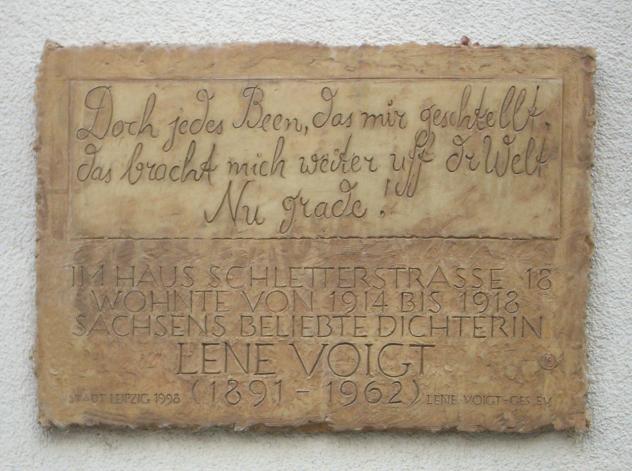 Doch jedes Been, das mir geschtellt,
das bracht mich weiter uff dr Welt
Nu grade!
IM HAUS SCHLETTERSTRASSE 18
WOHNTE VON 1914 BIS 1918
SACHSENS BELIEBTE DICHTERIN
LENE VOIGT
(1891 - 1962)
STADT LEIPZIG 1998
LENE VOIGT-GES. E.V.